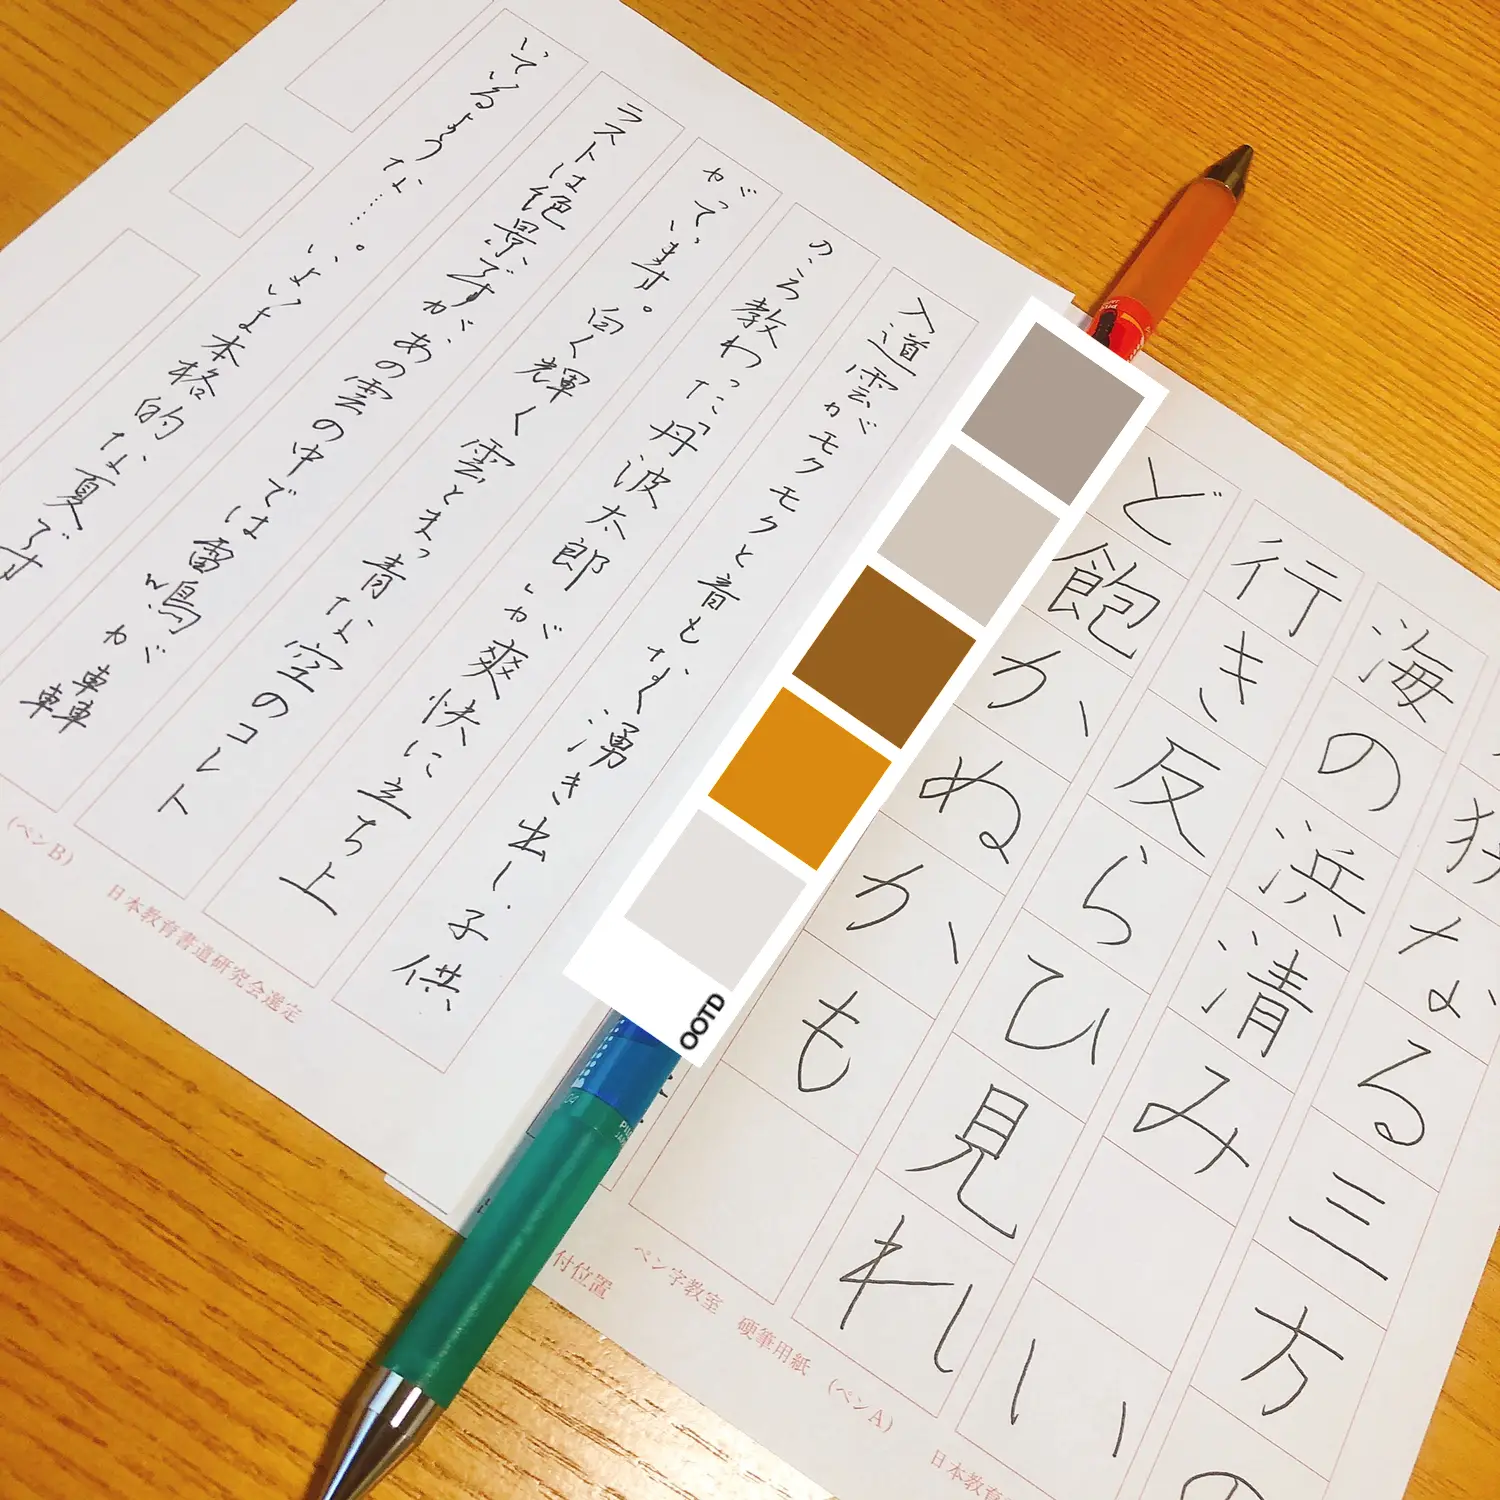 狭なる三方の
海の浜清み い
行き反らひ見れ
ど飽かぬかも
入道雲がモクモクと音もなく湧き出し、子供
のころ教わった「丹波太郎」が爽快に立ち上
がっています。白く輝く雲とまっ青な空のコント
ラストは絶景ですが、あの雲の中では雷鳴が轟
いているような……。いよいよ本格的な夏です
(ペンB) 日本教育書道研究会選定
付位置 ペン字教室 硬筆用紙 (ペンA) 日本教育
OOTD
04